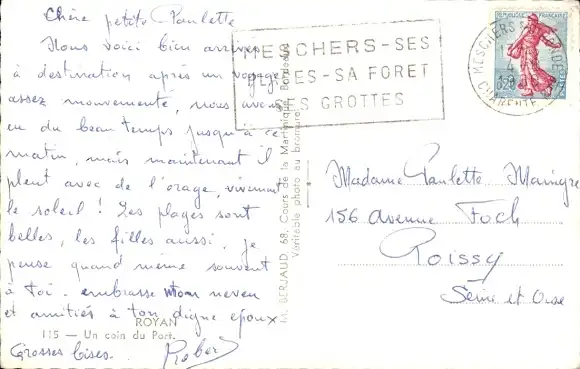 Chère petite Paulette
Nous voici bien arrivés
à destination après un voyage
assez mouvementé, nous avons
eu du beau temps jusqu'à ce
matin, mais maintenant il
pleut avec de l'orage, vivement
le soleil ! Les plages sont
belles, les filles aussi, je
pense quand même souvent
à toi. embrasse mon neveu
et amitiés à ton digne epoux
Grosses bises. Robert
ROYAN
115 — Un coin du Port.
M. BERJAUD, 68, Cours de la Martinique, Bordeaux
Véritable photo au bromure
MESCHERS-SES
PLAGES-SA FORET
SES GROTTES
REPUBLIQUE FRANÇAISE
0,20
MESCHERS
CHARENTE
Madame Paulette
156 Avenue Foch
Roissy
Seine et Oise